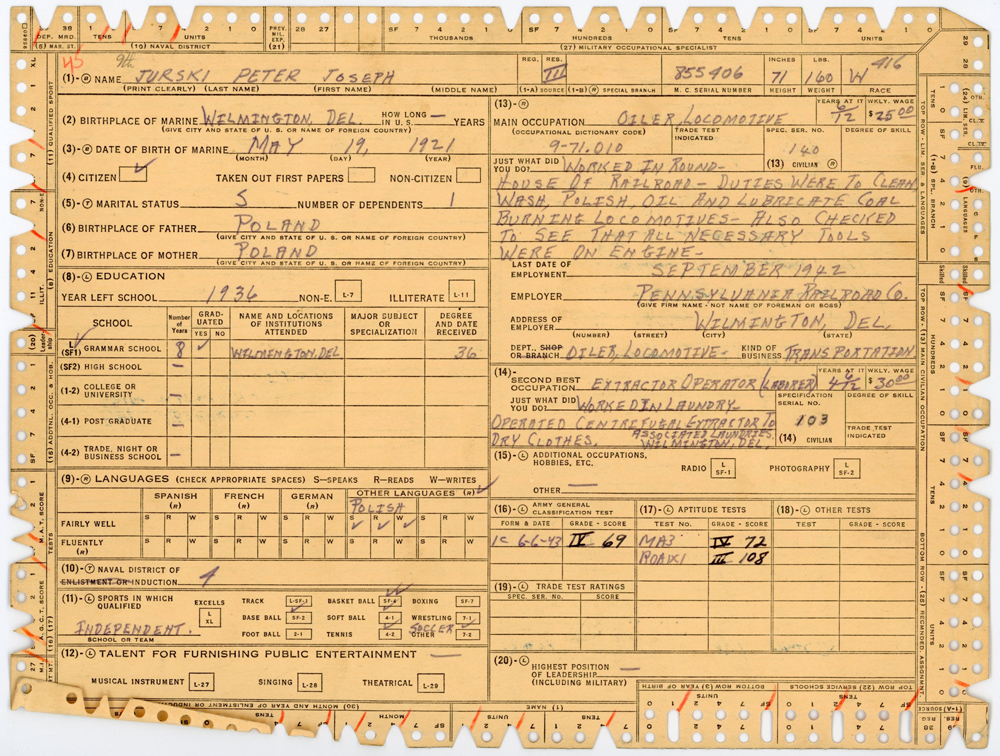 DEP. MRD. TENS UNITS PREV. MIL. EXP. 28 27 THOUSANDS HUNDREDS TENS UNITS
(8) MAR. ST. (10) NAVAL DISTRICT (21) (27) MILITARY OCCUPATIONAL SPECIALIST
45 9th 416
REG. RES. INCHES LBS.
(1)-(R) NAME JURSKI PETER JOSEPH III 855406 71 160 W
(PRINT CLEARLY) (LAST NAME) (FIRST NAME) (MIDDLE NAME) (1-A) SOURCE (1-B) (R) SPECIAL BRANCH M. C. SERIAL NUMBER HEIGHT WEIGHT RACE
(2) BIRTHPLACE OF MARINE WILMINGTON, DEL. HOW LONG IN U. S. — YEARS
(GIVE CITY AND STATE OF U. S. OR NAME OF FOREIGN COUNTRY)
(3)-(R) DATE OF BIRTH OF MARINE MAY 19, 1921
(MONTH) (DAY) (YEAR)
(4) CITIZEN ✓ TAKEN OUT FIRST PAPERS NON-CITIZEN
(5)-(T) MARITAL STATUS S NUMBER OF DEPENDENTS 1
(6) BIRTHPLACE OF FATHER POLAND
(GIVE CITY AND STATE OF U. S. OR NAME OF FOREIGN COUNTRY)
(7) BIRTHPLACE OF MOTHER POLAND
(GIVE CITY AND STATE OF U. S. OR NAME OF FOREIGN COUNTRY)
(8)-(L) EDUCATION
YEAR LEFT SCHOOL 1936 NON-E. L-7 ILLITERATE L-11
SCHOOL Number of Years GRADUATED YES NO NAME AND LOCATIONS OF INSTITUTIONS ATTENDED MAJOR SUBJECT OR SPECIALIZATION DEGREE AND DATE RECEIVED
L (SF1) GRAMMAR SCHOOL 8 ✓ WILMINGTON, DEL 36
(SF2) HIGH SCHOOL —
(1-2) COLLEGE OR UNIVERSITY —
(4-1) POST GRADUATE —
(4-2) TRADE, NIGHT OR BUSINESS SCHOOL —
(9)-(R) LANGUAGES (CHECK APPROPRIATE SPACES) S—SPEAKS R—READS W—WRITES
SPANISH (R) FRENCH (R) GERMAN (R) OTHER LANGUAGES (R) ✓
POLISH
FAIRLY WELL S R W S R W S R W S R W S R W
✓ ✓ ✓
FLUENTLY (R) S R W S R W S R W S R W S R W
(10)-(T) NAVAL DISTRICT OF ENLISTMENT OR INDUCTION 4
(11)-(L) SPORTS IN WHICH QUALIFIED EXCELLS L XL TRACK L-SF-1 BASKET BALL SF-4 BOXING SF-7
BASE BALL SF-2 SOFT BALL 4-1 WRESTLING 7-1
INDEPENDENT. SOCCER
SCHOOL OR TEAM FOOT BALL 2-1 TENNIS 4-2 OTHER 7-2
(12)-(L) TALENT FOR FURNISHING PUBLIC ENTERTAINMENT —
MUSICAL INSTRUMENT L-27 SINGING L-28 THEATRICAL L-29
(13)-(R) YEARS AT IT WKLY. WAGE
MAIN OCCUPATION OILER, LOCOMOTIVE 6/12 $25.00
(OCCUPATIONAL DICTIONARY CODE) TRADE TEST INDICATED SPEC. SER. NO. DEGREE OF SKILL
9-71.010 140
JUST WHAT DID YOU DO? WORKED IN ROUND- (13) CIVILIAN (R)
HOUSE OF RAILROAD — DUTIES WERE TO CLEAN
WASH, POLISH, OIL AND LUBRICATE COAL
BURNING LOCOMOTIVES — ALSO CHECKED
TO SEE THAT ALL NECESSARY TOOLS
WERE ON ENGINE —
LAST DATE OF EMPLOYMENT SEPTEMBER 1942
EMPLOYER PENNSYLVANIA RAILROAD CO.
(GIVE FIRM NAME - NOT NAME OF FOREMAN OR BOSS)
ADDRESS OF EMPLOYER WILMINGTON, DEL.
(NUMBER) (STREET) (CITY) (STATE)
DEPT., SHOP OR BRANCH OILER, LOCOMOTIVE - KIND OF BUSINESS TRANSPORTATION
(14)- YEARS AT IT WKLY. WAGE
SECOND BEST OCCUPATION EXTRACTOR OPERATOR (LABORER) 4 6/12 $30.00
JUST WHAT DID YOU DO? WORKED IN LAUNDRY SPECIFICATION SERIAL NO. DEGREE OF SKILL
OPERATED CENTRIFUGAL EXTRACTOR TO 103 TRADE TEST INDICATED
DRY CLOTHES. ASSOCIATED LAUNDRIES, WILMINGTON, DEL. (14) CIVILIAN
(15)-(L) ADDITIONAL OCCUPATIONS, HOBBIES, ETC. RADIO L SF-1 PHOTOGRAPHY L SF-2
OTHER —
(16)-(L) ARMY GENERAL CLASSIFICATION TEST (17)-(L) APTITUDE TESTS (18)-(L) OTHER TESTS
FORM & DATE GRADE - SCORE TEST NO. GRADE - SCORE TEST GRADE - SCORE
1C 6-6-43 IV 69 MA3 IV 72
ROAIX1 III 108
(19)-(L) TRADE TEST RATINGS
SPEC. SER. NO. SCORE
(20)-(L) HIGHEST POSITION OF LEADERSHIP — (INCLUDING MILITARY)
(11) QUALIFIED SPORT
(8) EDUCATION
(20) Leadership
(15) ADDTNL. OCC. & HOB.
M. A. T. SCORE
A. G. C. T. SCORE
(16) (17) TESTS
TOP ROW - LIM. SER. & LANGUAGES
(1-B) SPL. BRANCH
(9) LANGUAGES
TOP ROW - (13) MAIN CIVILIAN OCCUPATION
BOTTOM ROW - (28) RECMNDED ASSIGNMENT
TENS HUNDREDS TENS UNITS
(30) MONTH AND YEAR OF ENLISTMENT OR INDUCTION
(1) NAME
BOTTOM ROW (3) YEAR OF BIRTH
TOP ROW (22) SERVICE SCHOOLS
(1-A) SOURCE
MONTH TENS UNITS
REG RES